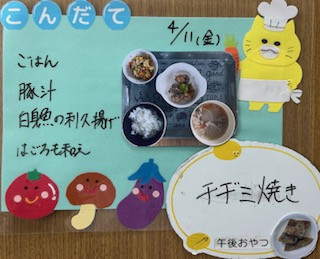 こんだて
4/11(金)
ごはん
豚汁
白身魚の利久揚げ
はごろも和え
チヂミ焼き
午後おやつ